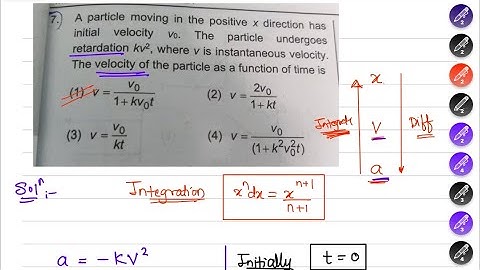 7. A particle moving in the positive x direction has
initial velocity v₀. The particle undergoes
retardation kv², where v is instantaneous velocity.
The velocity of the particle as a function of time is
(1) v = v₀/(1 + kv₀t)
(2) v = 2v₀/(1 + kt)
(3) v = v₀/kt
(4) v = v₀/(1 + k²v₀²t)
x
Integrate
v
Diff
a
Solⁿ :-
Integration
xⁿdx = xⁿ⁺¹/(n+1)
a = -KV²
Initially
t = 0